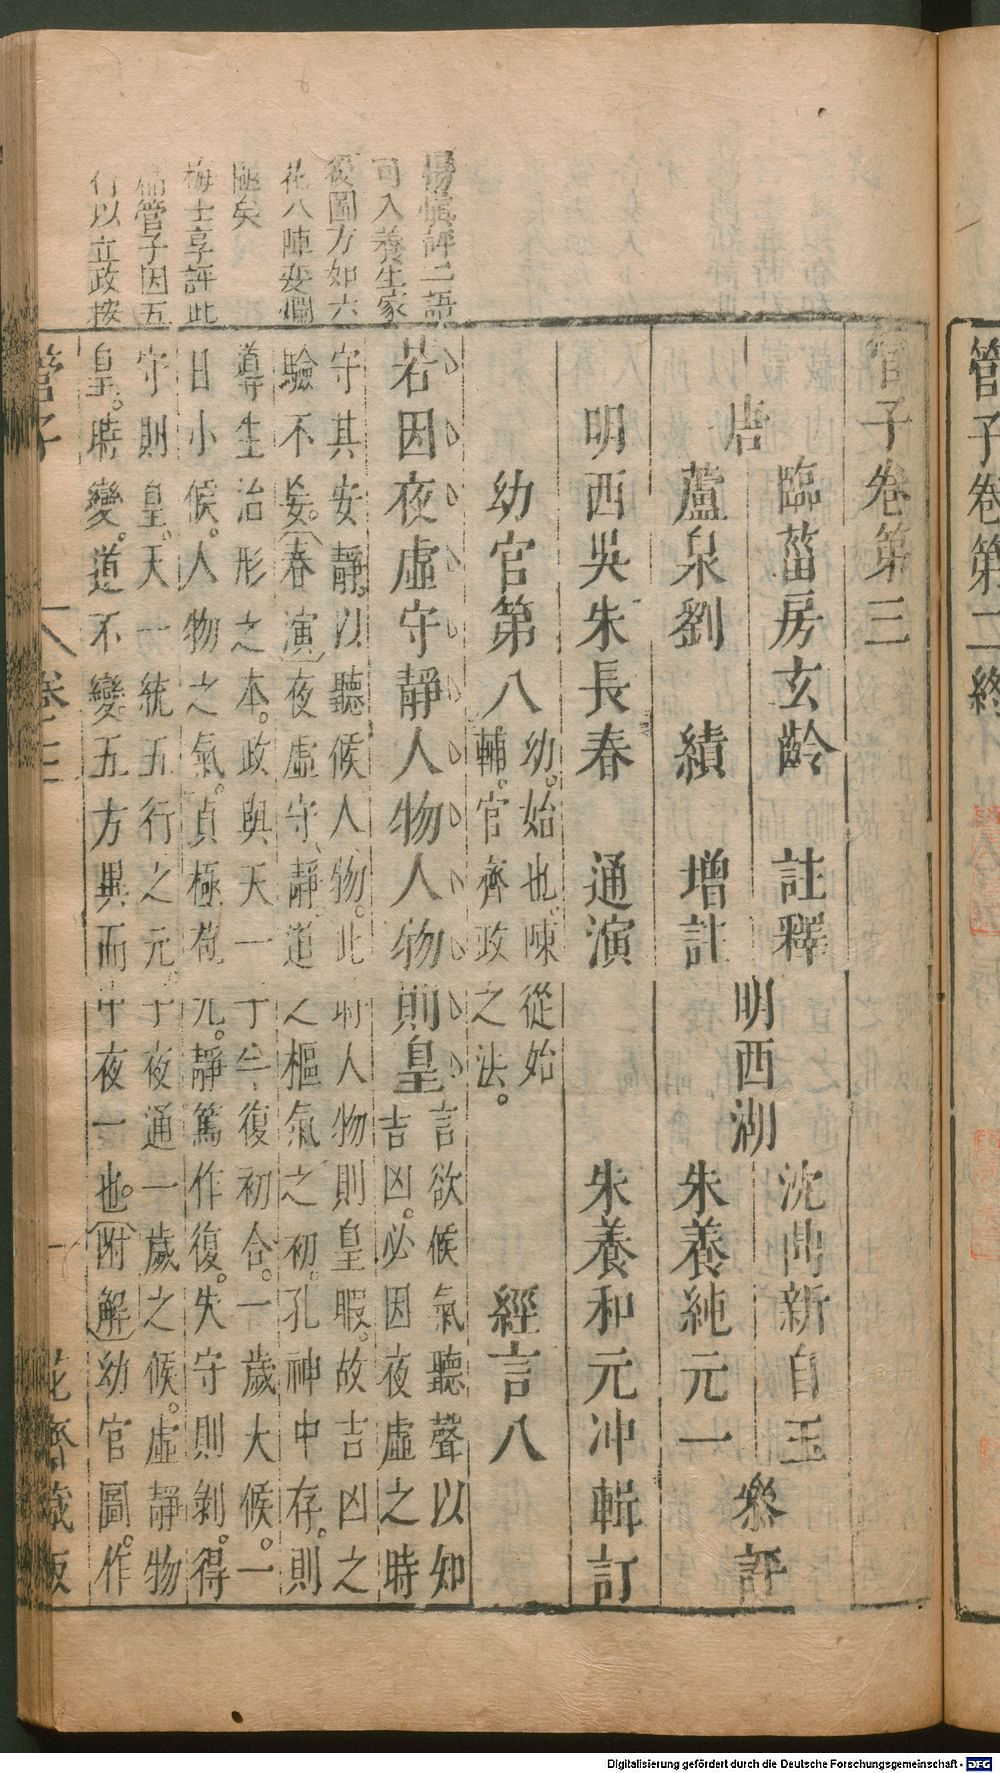 管子卷第二終
管子卷第三
唐
臨菑房玄齡 註釋
蘆泉劉 績 增註
明西湖
沈鼎新自玉
朱養純元一
參評
明西吳朱長春 通演
朱養和元冲輯訂
幼官第八
幼。始也。陳從始
輔。官齊政之法。
經言八
若因夜虛守靜人物人物則皇
言欲候氣聽聲以知
吉凶。必因夜虛之時
守其安靜。以聽候人物。此時人物則皇暇。故吉凶之
驗不妄。(春演)夜虛守靜、道之樞氣之初。孔神中存。則
導生治形之本。政與天一子半、復初合。一歲大候。一
日小候。人物之氣。貞極苞元。靜篤作復。失守則剝。得
守則皇。天一統五行之元。子夜通一歲之候。虛靜物
皇。時變。道不變。五方異而中夜一也。(附解)幼官圖。作
楊慎評二語
可入養生家
後圖方如六
花八陣変爛
極矣
梅士享評此
篇管子因五
行以立政按
管子
卷三
一
花齋藏版
Digitalisierung gefördert durch die Deutsche Forschungsgemeinschaft - DFG